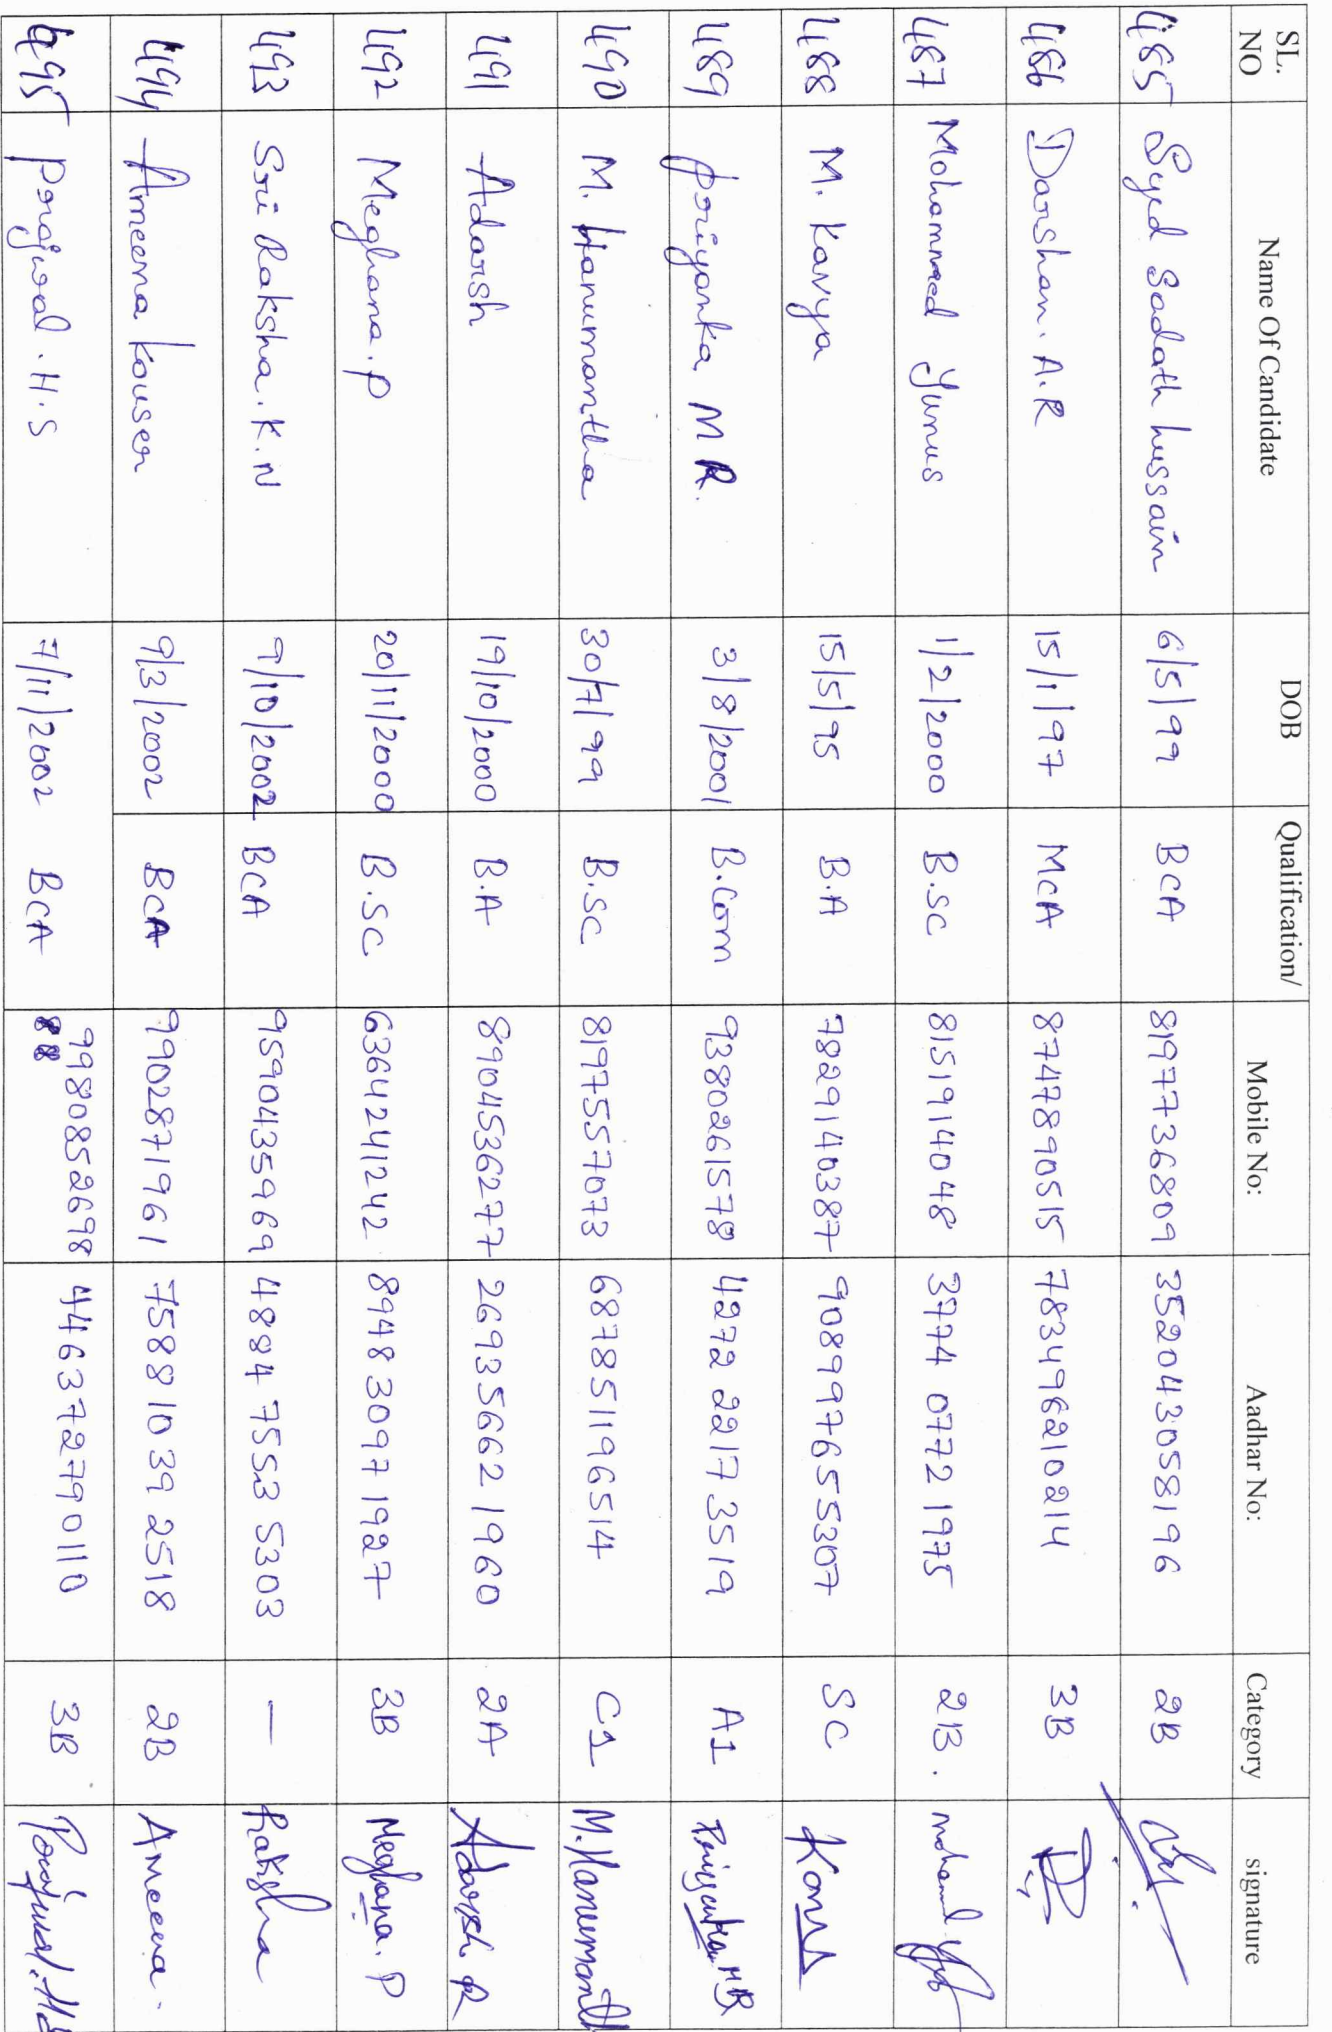 SL. NO Name Of Candidate DOB Qualification/ Mobile No: Aadhar No: Category signature
485 Syed Sadath hussain 6/5/99 BCA 8197736809 352043058196 2B
486 Darshan. A.R 15/1/97 MCA 8747890515 783496210214 3B
487 Mohammed Yunus 1/2/2000 B.SC 8151914048 3774 0772 1975 2B.
488 M. Kavya 15/5/95 B.A 7829140387 908997655307 SC
489 Priyanka M R. 3/8/2001 B.Com 9380261578 4272 2217 3519 A1 Priyanka MR
490 M. Hanumantha 30/7/99 B.SC 8197557073 687851196514 C1 M. Hanumanth
491 Adarsh 19/10/2000 B.A 8904536277 269356621960 2A Adarsh R
492 Meghana. P 20/11/2000 B.SC 6364241242 8948 3097 1927 3B Meghana. P
493 Sri Raksha. K. N 9/10/2002 BCA 9590435969 4884 7553 5303 — Raksha
494 Ameena kouser 9/3/2002 BCA 9902871961 7588 1039 2518 2B Ameena.
495 Prajwal. H. S 7/11/2002 BCA 9980852698 446372790110 3B Prajwal. H.S